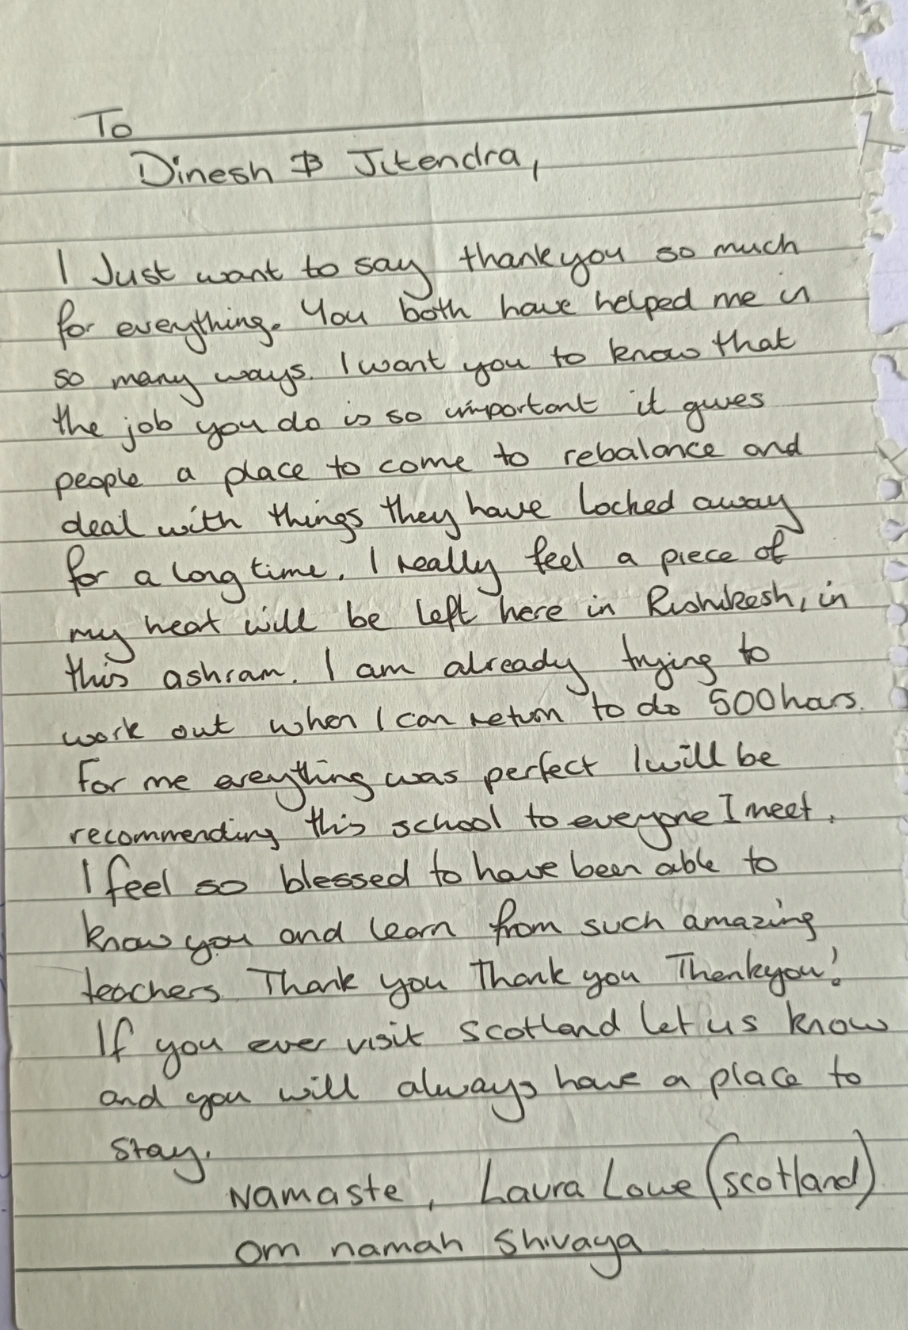 To
Dinesh & Jitendra,
I Just want to say thankyou so much
for everything. You both have helped me in
so many ways. I want you to know that
the job you do is so important it gives
people a place to come to rebalance and
deal with things they have locked away
for a long time. I really feel a piece of
my heat will be left here in Rishikesh, in
this ashram. I am already trying to
work out when I can return to do 500 hours.
For me everything was perfect I will be
recommending this school to everyone I meet.
I feel so blessed to have been able to
know you and learn from such amazing
teachers Thank you Thank you Thankyou!
If you ever visit Scotland let us know
and you will always have a place to
stay.
Namaste, Laura Lowe (Scotland)
om namah Shivaya